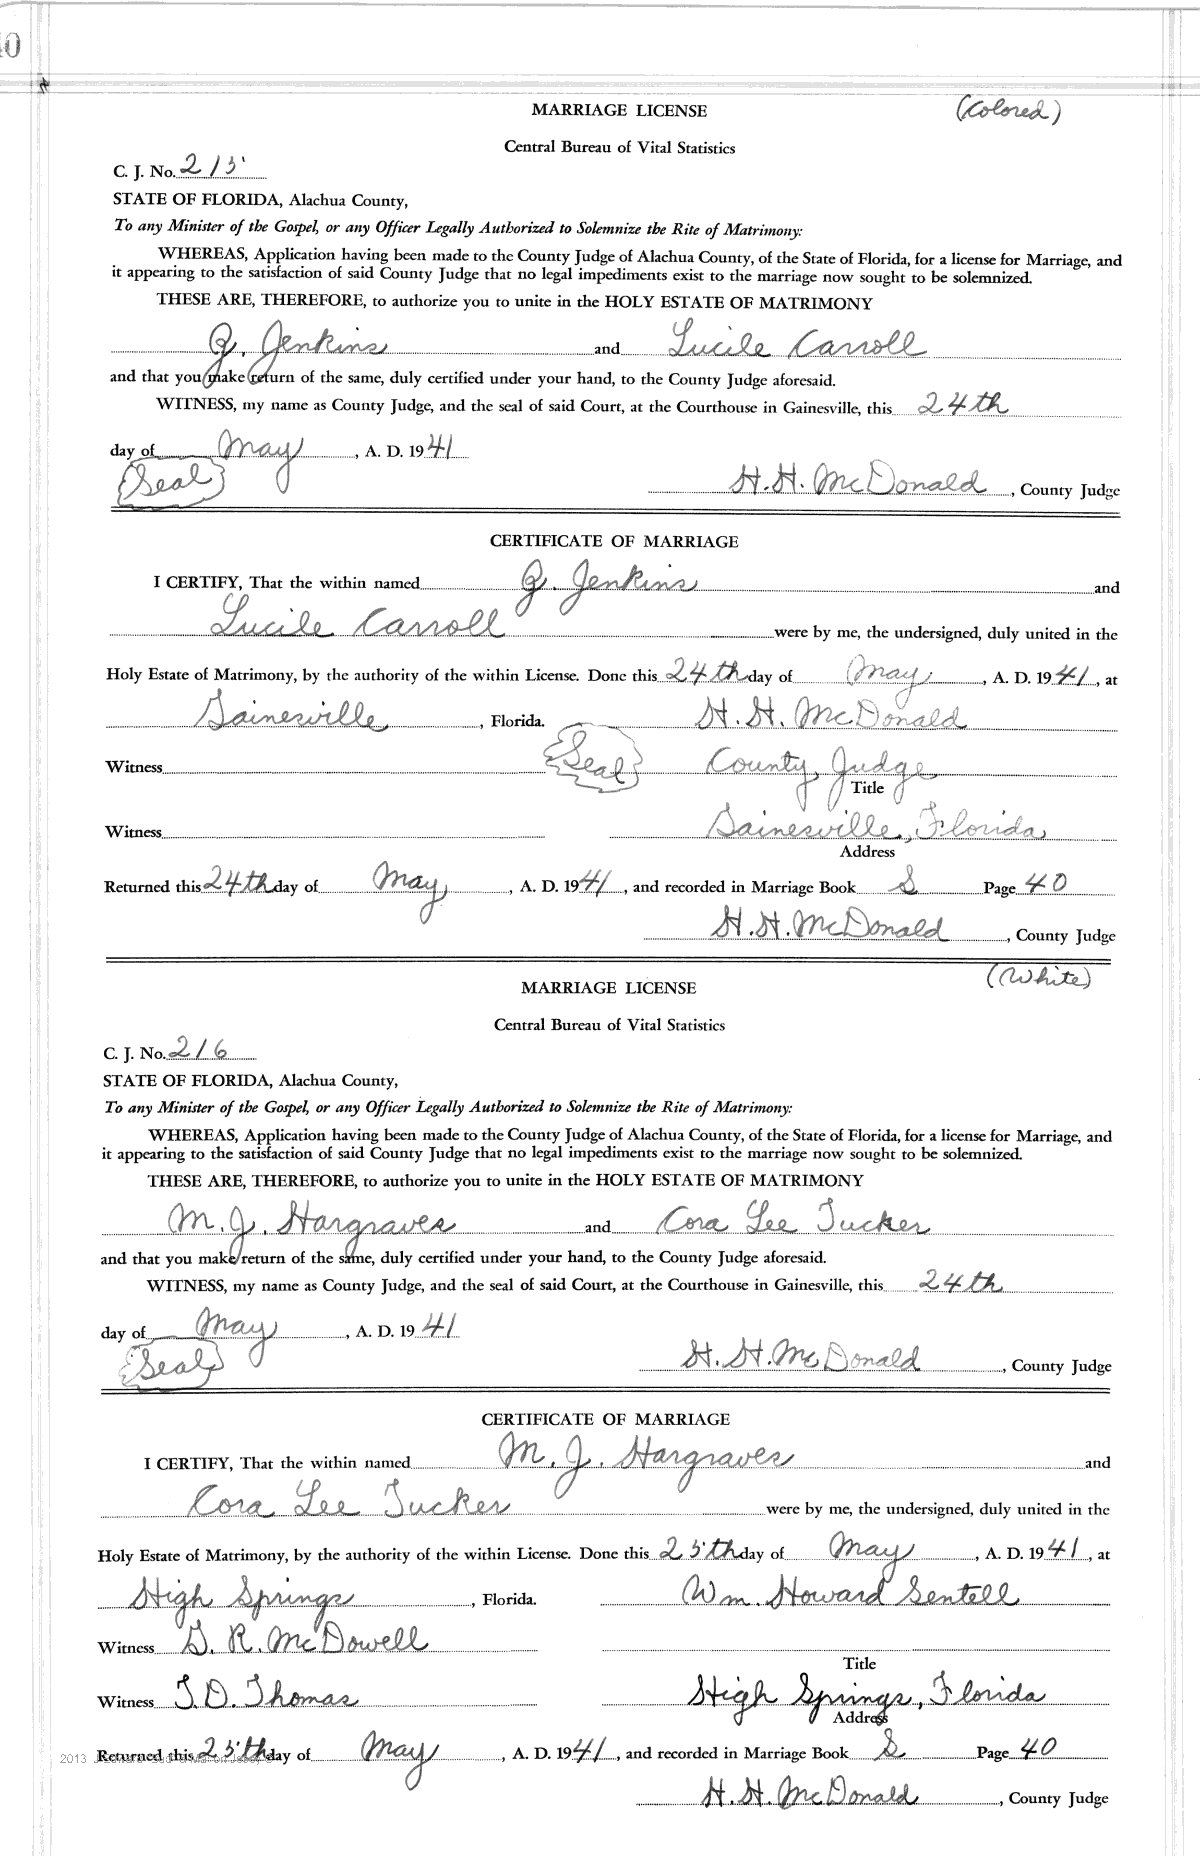 40
MARRIAGE LICENSE (Colored)
Central Bureau of Vital Statistics
C. J. No. 215
STATE OF FLORIDA, Alachua County,
To any Minister of the Gospel, or any Officer Legally Authorized to Solemnize the Rite of Matrimony:
WHEREAS, Application having been made to the County Judge of Alachua County, of the State of Florida, for a license for Marriage, and
it appearing to the satisfaction of said County Judge that no legal impediments exist to the marriage now sought to be solemnized.
THESE ARE, THEREFORE, to authorize you to unite in the HOLY ESTATE OF MATRIMONY
Jenkins and Lucile Carroll
and that you make return of the same, duly certified under your hand, to the County Judge aforesaid.
WITNESS, my name as County Judge, and the seal of said Court, at the Courthouse in Gainesville, this 24th
day of May, A. D. 1941
(Seal) H. H. McDonald, County Judge
CERTIFICATE OF MARRIAGE
I CERTIFY, That the within named Jenkins and
Lucile Carroll were by me, the undersigned, duly united in the
Holy Estate of Matrimony, by the authority of the within License. Done this 24th day of May, A. D. 1941, at
Gainesville, Florida. H. H. McDonald
Witness (Seal) County Judge
Title
Witness Gainesville, Florida
Address
Returned this 24th day of May, A. D. 1941, and recorded in Marriage Book S Page 40
H. H. McDonald, County Judge
(White)
MARRIAGE LICENSE
Central Bureau of Vital Statistics
C. J. No. 216
STATE OF FLORIDA, Alachua County,
To any Minister of the Gospel, or any Officer Legally Authorized to Solemnize the Rite of Matrimony:
WHEREAS, Application having been made to the County Judge of Alachua County, of the State of Florida, for a license for Marriage, and
it appearing to the satisfaction of said County Judge that no legal impediments exist to the marriage now sought to be solemnized.
THESE ARE, THEREFORE, to authorize you to unite in the HOLY ESTATE OF MATRIMONY
M. J. Hargraves and Cora Lee Tucker
and that you make return of the same, duly certified under your hand, to the County Judge aforesaid.
WITNESS, my name as County Judge, and the seal of said Court, at the Courthouse in Gainesville, this 24th
day of May, A. D. 1941
(Seal) H. H. McDonald, County Judge
CERTIFICATE OF MARRIAGE
I CERTIFY, That the within named M. J. Hargraves and
Cora Lee Tucker were by me, the undersigned, duly united in the
Holy Estate of Matrimony, by the authority of the within License. Done this 25th day of May, A. D. 1941, at
High Springs, Florida. Wm. Howard Sentell
Witness G. R. McDowell
Title
Witness T. D. Thomas High Springs, Florida
Address
2013
Returned this 25th day of May, A. D. 1941, and recorded in Marriage Book S Page 40
H. H. McDonald, County Judge